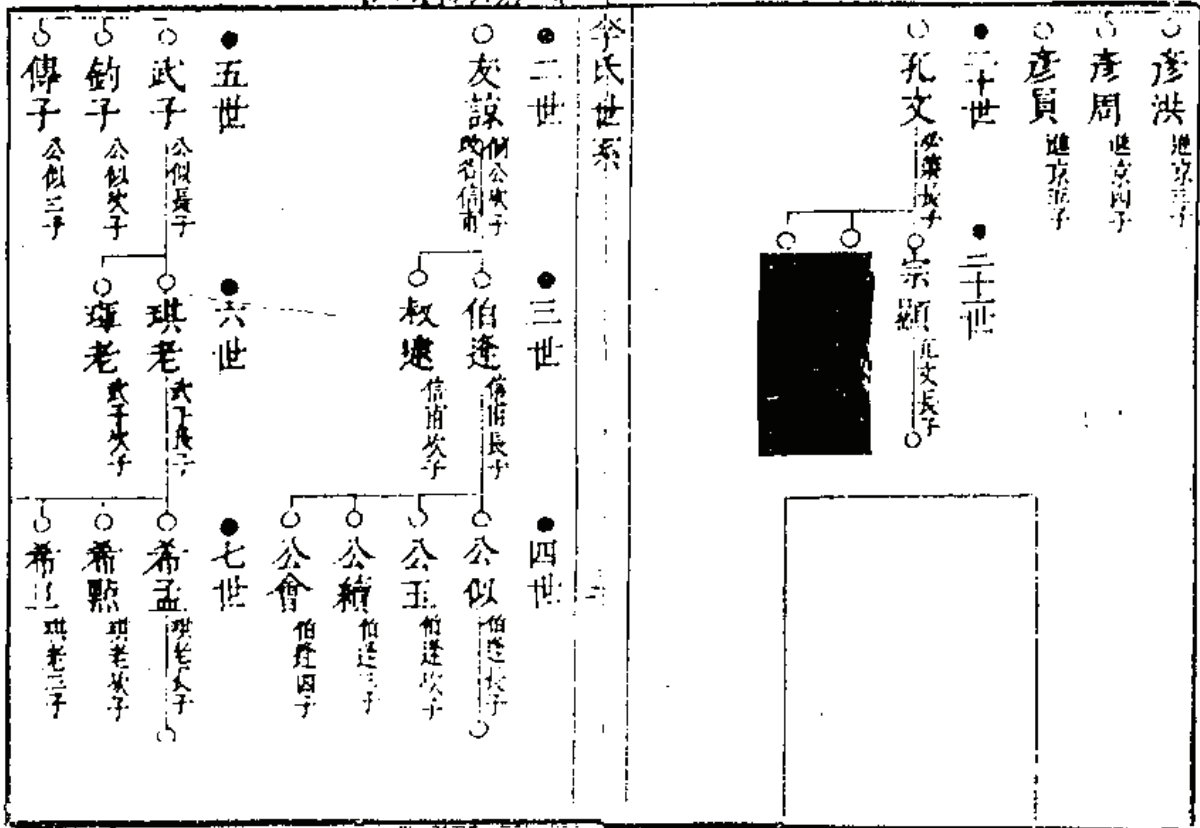 彥洪 進京三子
彥周 進京四子
彥賢 進京五子
二十世
孔文 必榮長子
二十一世
宗顯 孔文長子
李氏世系
二世
友諒 公次子
改名信甫
三世
伯逢 信甫長子
叔建 信甫次子
四世
公似 伯逢長子
公玉 伯逢次子
公績 伯逢三子
公會 伯逢四子
五世
武子 公似長子
鈞子 公似次子
傳子 公似三子
六世
琪老 武子長子
老 武子次子
七世
希孟 琪老長子
希點 琪老次子
希 琪老三子